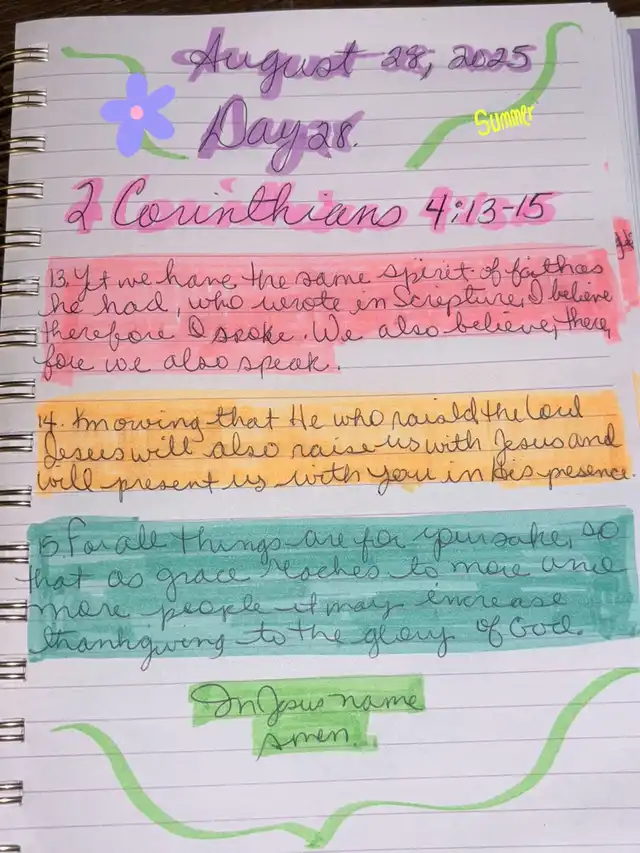 August 28, 2025
Day 28.
Summer
2 Corinthians 4:13-15
13. Yet we have the same spirit of faith as
he had, who wrote in Scripture, I believe
therefore I spoke. We also believe, there,
fore we also speak.
14. Knowing that He who raised the Lord
Jesus will also raise us with Jesus and
will present us with you in His presence.
15 For all things are for your sake, so
that as grace reaches to more and
more people it may increase
thanhgiving to the glory of God.
In Jesus name
amen.